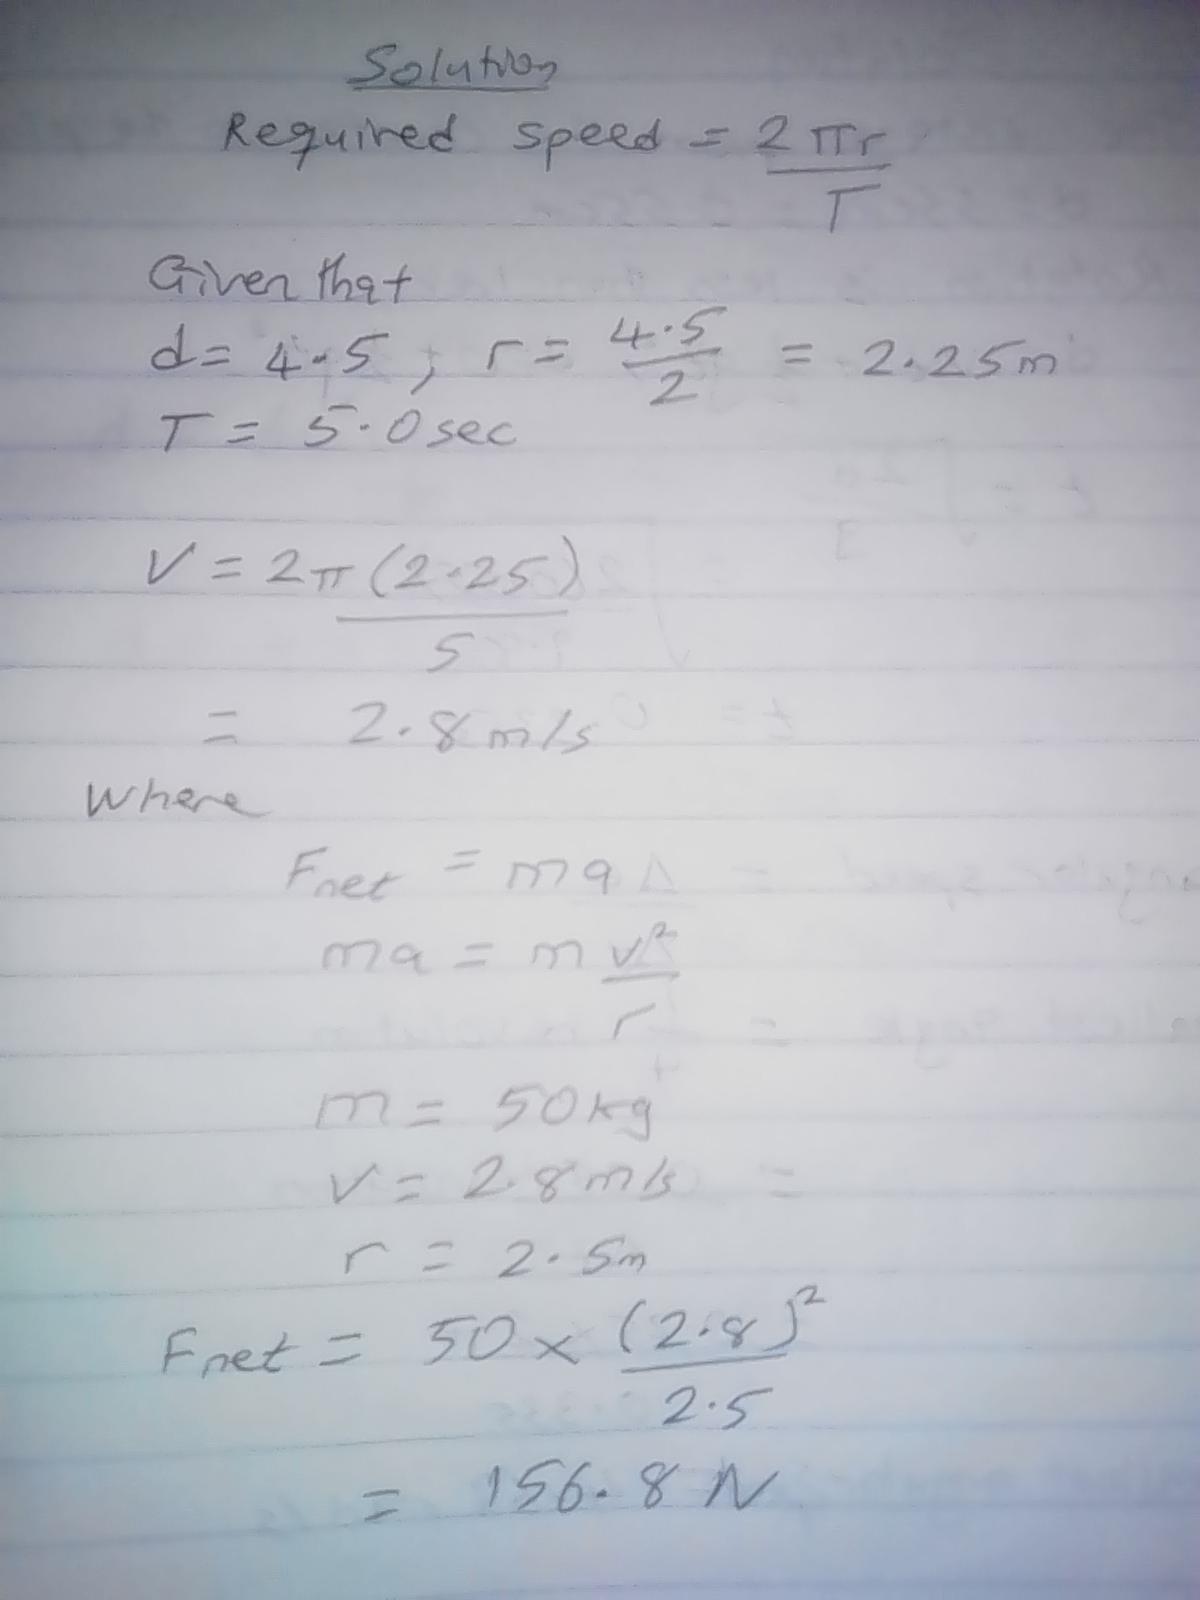 Solution
Required speed = 2πr
T
Given that
d = 4.5 , r = 4.5 = 2.25m
2
T = 5.0sec
V = 2π (2.25)
5
= 2.8 m/s
Where
Fnet = ma
ma = m v²
r
m = 50kg
v = 2.8 m/s
r = 2.5m
Fnet = 50 x (2.8)²
2.5
= 156.8 N